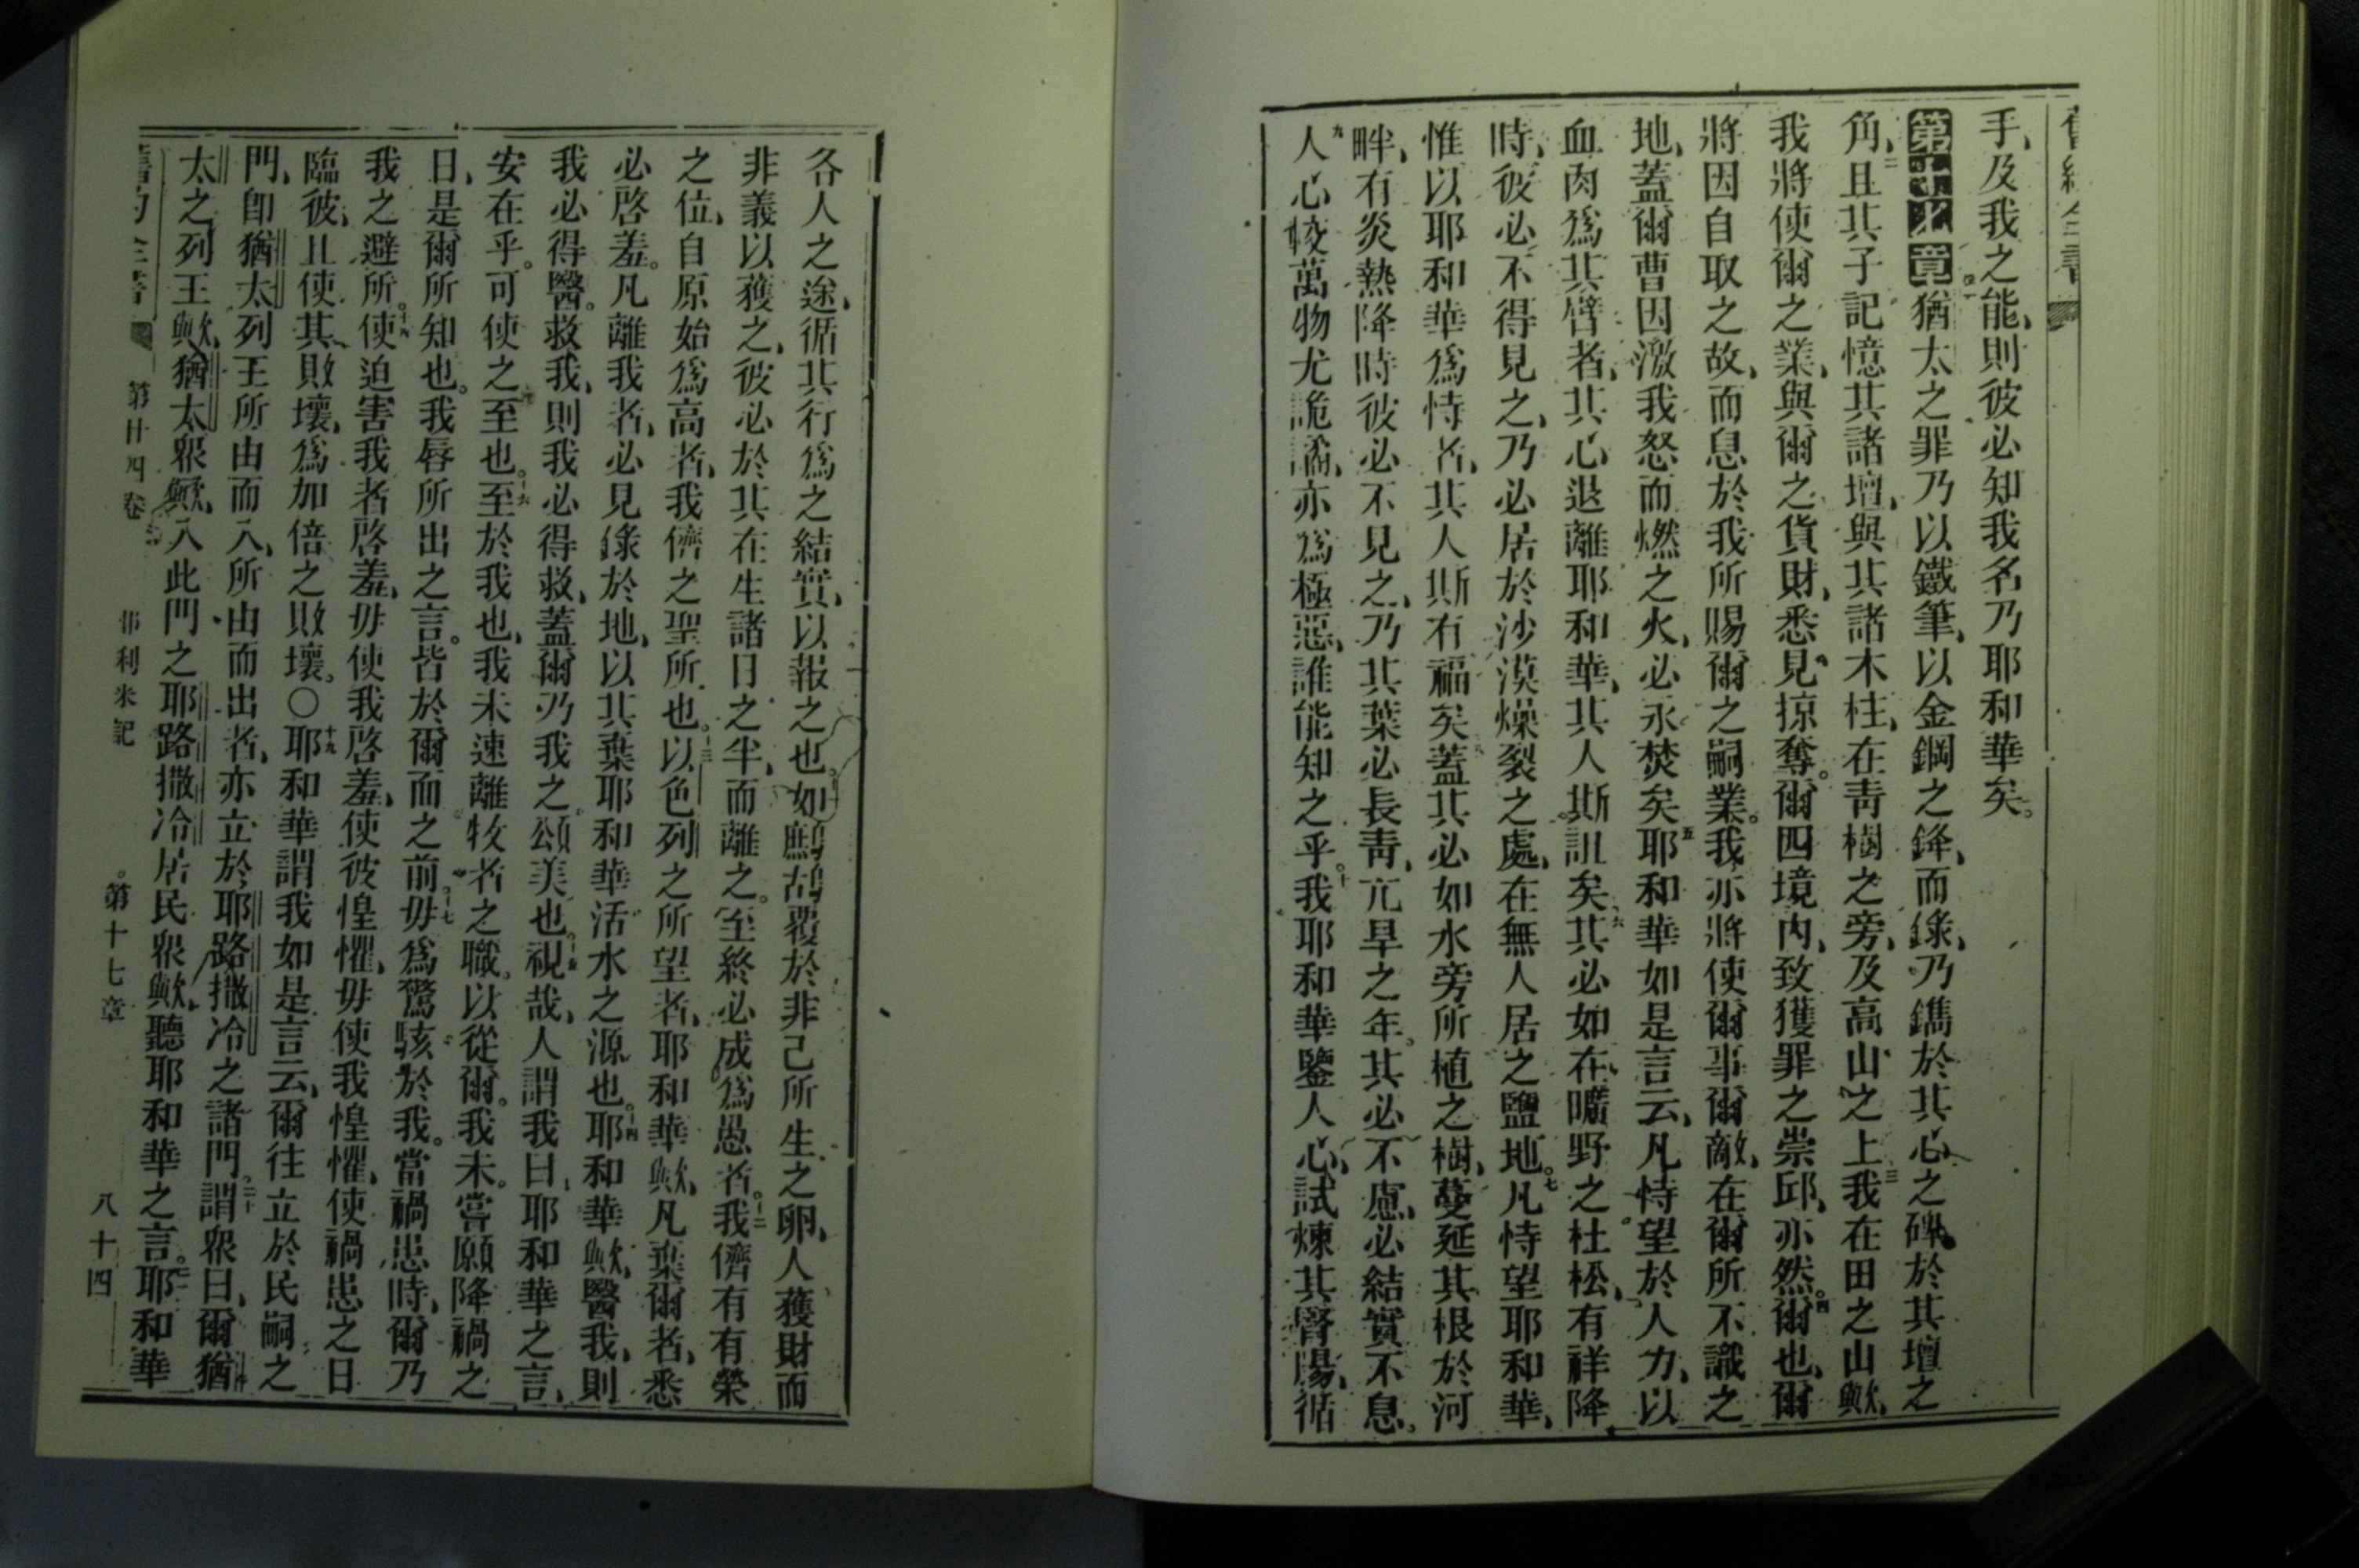 手、及我之能、則彼必知我名乃耶和華矣。
第十七章猶太之罪乃以鐵筆、以金鋼之鋒、而錄、乃鐫於其心之碑、於其壇之
角、二且其子記憶其諸壇、與其諸木柱、在靑樹之旁、及高山之上、三我在田之山歟、
我將使爾之業、與爾之貨財、悉見掠奪。爾四境內、致獲罪之崇邱、亦然。四爾也、爾
將因自取之故、而息於我所賜爾之嗣業。我亦將使爾事爾敵、在爾所不識之
地、蓋爾曹因激我怒而燃之火、必永焚矣、五耶和華如是言云、凡恃望於人力、以
血肉爲其臂者、其心退離耶和華、其人斯詛矣、六其必如在曠野之杜松、有祥降
時、彼必不得見之、乃必居於沙漠燥裂之處、在無人居之鹽地。七凡恃望耶和華、
惟以耶和華爲恃者、其人斯有福矣、八蓋其必如水旁所植之樹、蔓延其根於河
畔、有炎熱降時彼必不見之、乃其葉必長靑、亢旱之年。其必不慮、必結實不息。
九人心較萬物尤詭譎、亦爲極惡、誰能知之乎。十我耶和華鑒人心、試煉其腎腸、循
各人之途、循其行爲之結實、以報之也。十一如鷓鴣覆於非己所生之卵、人獲財而
非義以獲之、彼必於其在生諸日之半、而離之。至終必成爲愚者。十二我儕有有榮
之位、自原始爲高者、我儕之聖所也。十三以色列之所望者、耶和華歟、凡棄爾者、悉
必啓羞。凡離我者、必見錄於地、以其棄耶和華活水之源也。十四耶和華歟、醫我、則
我必得醫。救我、則我必得救、蓋爾乃我之頌美也。十五視哉、人謂我曰、耶和華之言、
安在乎。可使之至也。十六至於我也、我未速離牧者之職。以從爾。我未嘗願降禍之
日、是爾所知也。我唇所出之言。皆於爾而之前。十七毋爲驚駭於我。當禍患時、爾乃
我之避所。十八使迫害我者啓羞、毋使我啓羞、使彼惶懼、毋使我惶懼、使禍患之日
臨彼、且使其敗壞、爲加倍之敗壞。○十九耶和華謂我如是言云、爾往立於民嗣之
門、卽猶太列王所由而入、所由而出者、亦立於耶路撒冷之諸門。二十謂衆曰、爾猶
太之列王歟、猶太衆歟、入此門之耶路撒冷居民衆歟、聽耶和華之言。耶和華
第廿四卷 耶利米記 第十七章 八十四